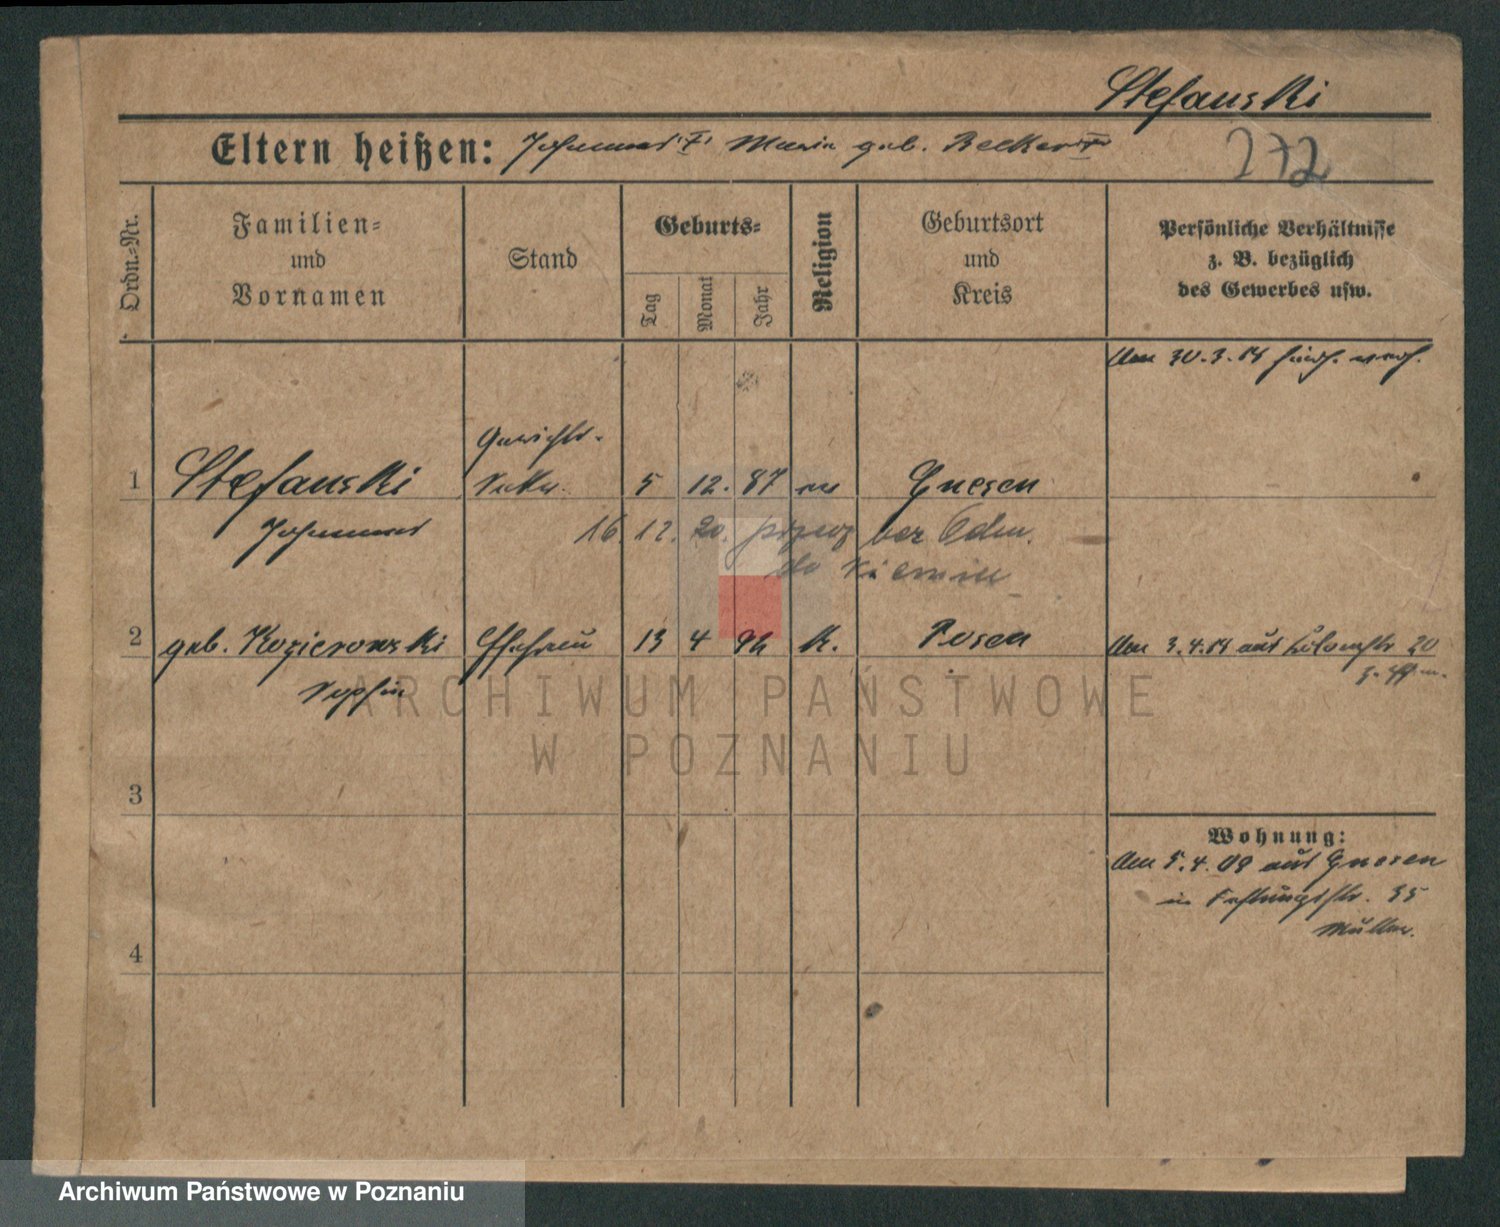 Stefanski
Eltern heißen: Johannes † Maria geb. Becker †
272
Ordn.-Nr.
Familien-
und
Vornamen
Stand
Geburts-
Tag
Monat
Jahr
Religion
Geburtsort
und
Kreis
Persönliche Verhältnisse
z. B. bezüglich
des Gewerbes usw.
Am 30.3.14
Gerichts-
1 Stefanski 5 12. 87 Gnesen
Johannes
16. 12. 20. bez Odm.
do
2 geb. Kozierowski Ehefrau 13 4 92 K. Posen Am 3.4.14 aus 20
Sophie
ARCHIWUM PAŃSTWOWE
W POZNANIU
3
Wohnung:
Am 5.4.09 aus Gnesen
in Festungsstr. 35
Müller.
4
Archiwum Państwowe w Poznaniu